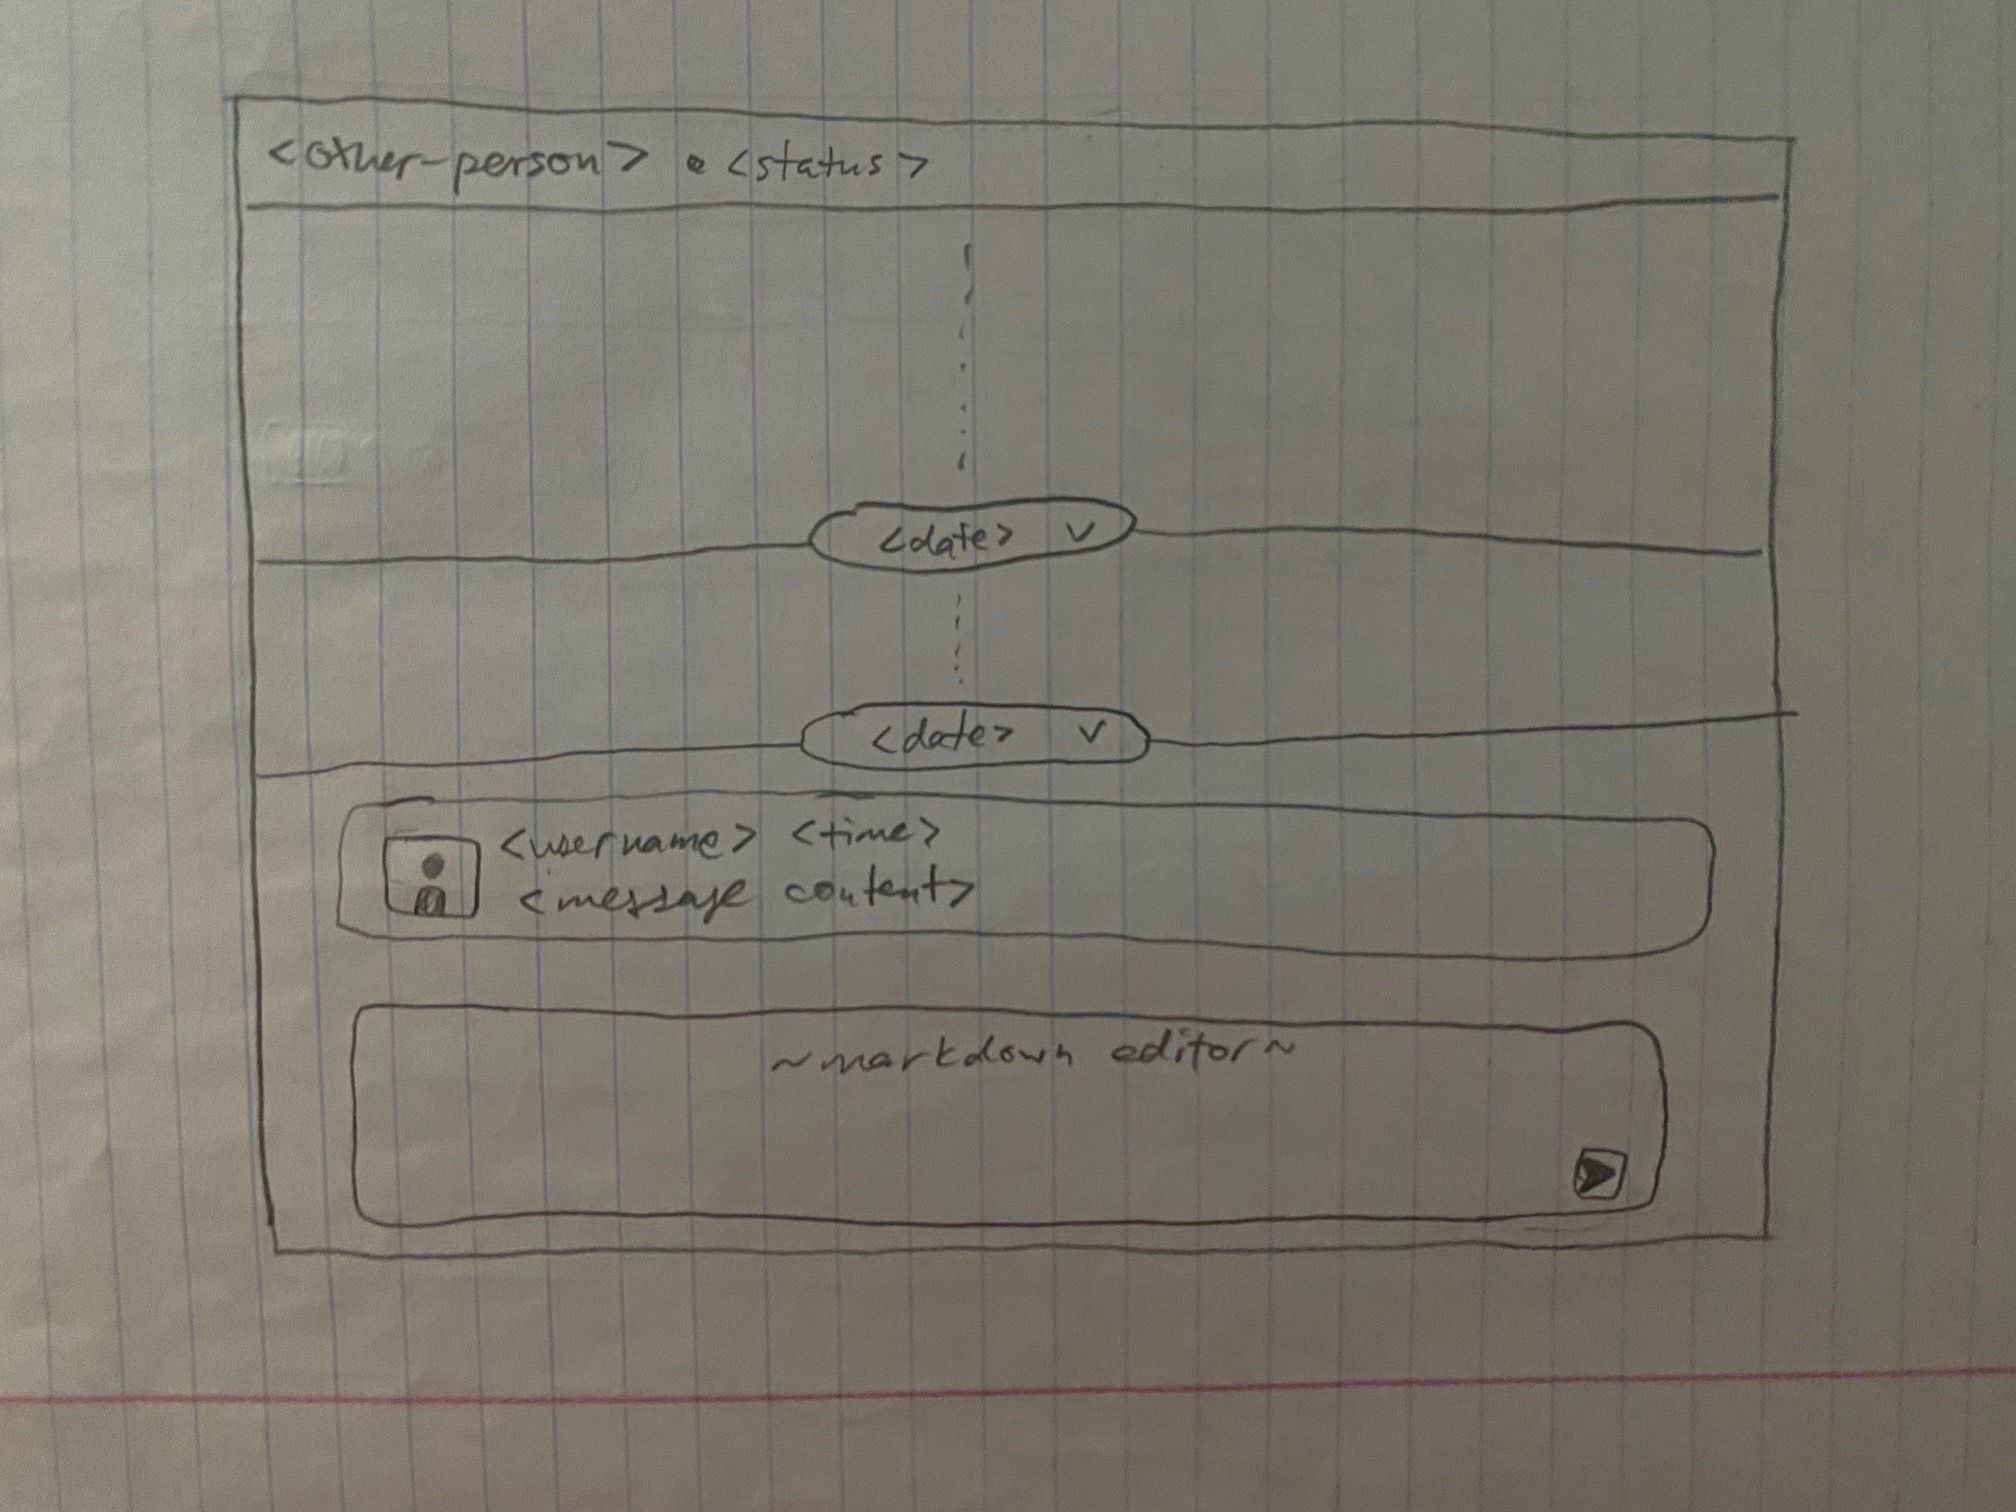 <other-person> • <status>
<date> v
<date> v
<username> <time>
<message content>
~markdown editor~